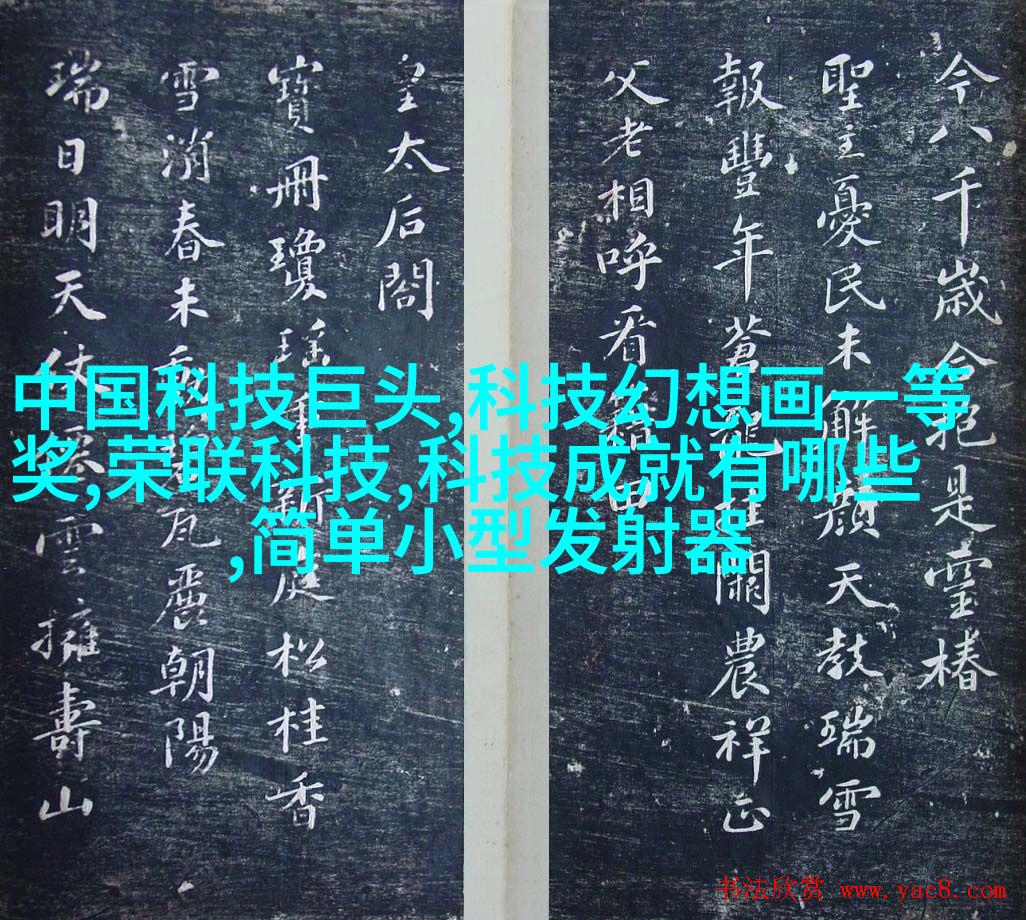 今八千歲合抱是靈椿
聖主憂民未解顏天教瑞雪
報豐年蒼龍挂闕農祥正
父老相呼看藉田
皇太后閤
寶冊瓊瑤重新庭松桂香
雪消春未動瓦麗朝陽
瑞日明天仗雲擁壽山
中国科技巨头,科技幻想画一等
奖,荣联科技,科技成就有哪些
,简单小型发射器
书法欣赏 www.yac8.com